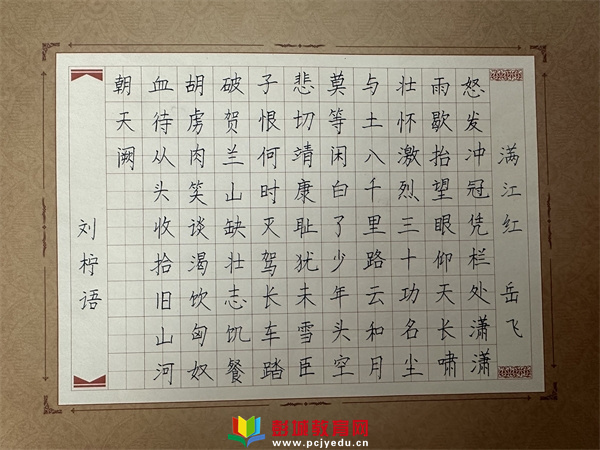 满江红 岳飞
怒发冲冠凭栏处潇潇
雨歇抬望眼仰天长啸
壮怀激烈三十功名尘
与土八千里路云和月
莫等闲白了少年头空
悲切靖康耻犹未雪臣
子恨何时灭驾长车踏
破贺兰山缺壮志饥餐
胡虏肉笑谈渴饮匈奴
血待从头收拾旧山河
朝天阙
刘柠语
彭城教育网
www.pcjyedu.cn